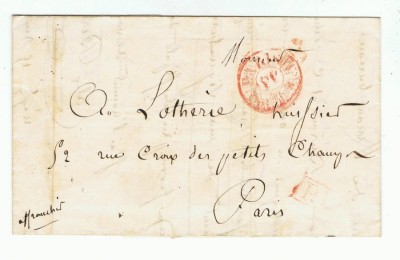 Monsieur
A. Lotherie huissier
52 rue Croix des petits Champs
Paris
affranchie